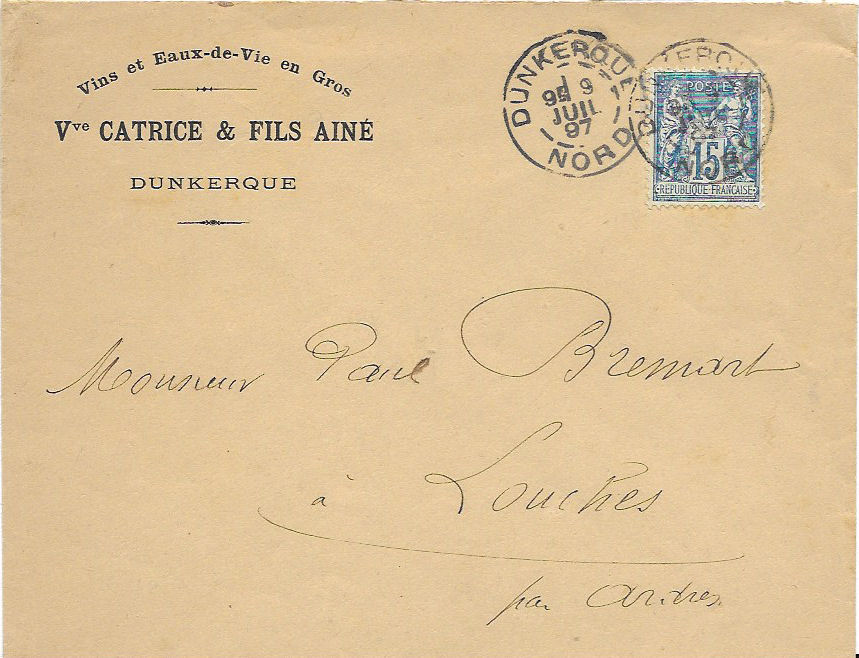 Vins et Eaux-de-Vie en Gros
Vve CATRICE & FILS AINÉ
DUNKERQUE
DUNKERQUE
9
JUIL
97
NORD
POSTE
15
REPUBLIQUE FRANÇAISE
Monsieur Paul Bremart
à Louches
par Ardres